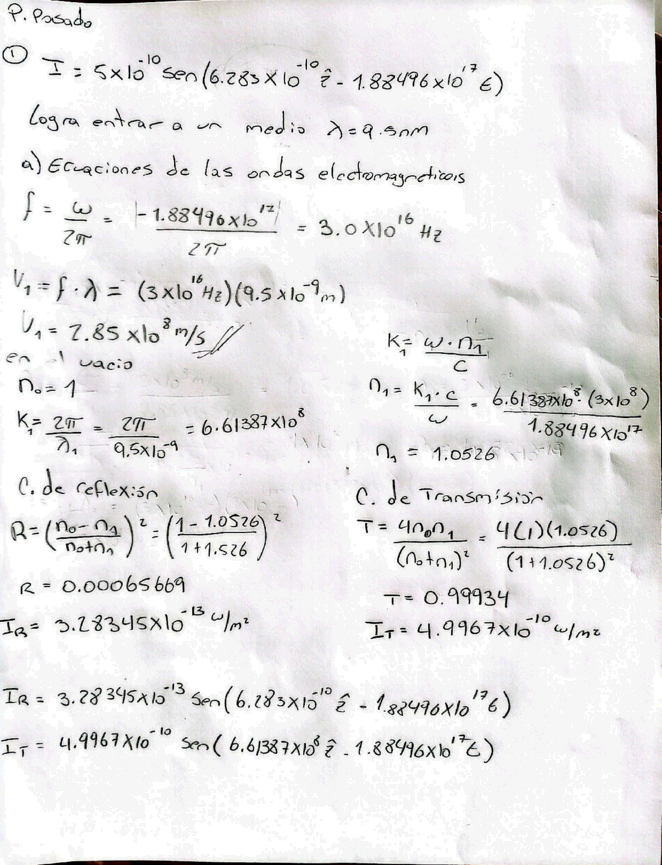 P. Pasado
① I = 5x10^-10 sen(6.283x10^-10 ẑ - 1.88496x10^17 t)
Logra entrar a un medio λ = 9.5nm
a) Ecuaciones de las ondas electromagneticas
f = ω/2π = |-1.88496x10^17|/2π = 3.0x10^16 Hz
V₁ = f·λ = (3x10^16 Hz)(9.5x10^-9 m)
V₁ = 2.85x10^8 m/s //
en el vacio
n₀ = 1
K₁ = 2π/λ₁ = 2π/9.5x10^-9 = 6.61387x10^8
K₁ = ω·n₁/c
n₁ = K₁·c/ω = 6.61387x10^8·(3x10^8)/1.88496x10^17
n₁ = 1.0526
C. de reflexión
R = (n₀-n₁/n₀+n₁)² = (1-1.0526/1+1.526)²
R = 0.00065669
I_R = 3.28345x10^-13 w/m²
C. de Transmisión
T = 4n₀n₁/(n₀+n₁)² = 4(1)(1.0526)/(1+1.0526)²
T = 0.99934
I_T = 4.9967x10^-10 w/m²
I_R = 3.28345x10^-13 sen(6.283x10^-10 ẑ - 1.88496x10^17 t)
I_T = 4.9967x10^-10 sen(6.61387x10^8 ẑ - 1.88496x10^17 t)